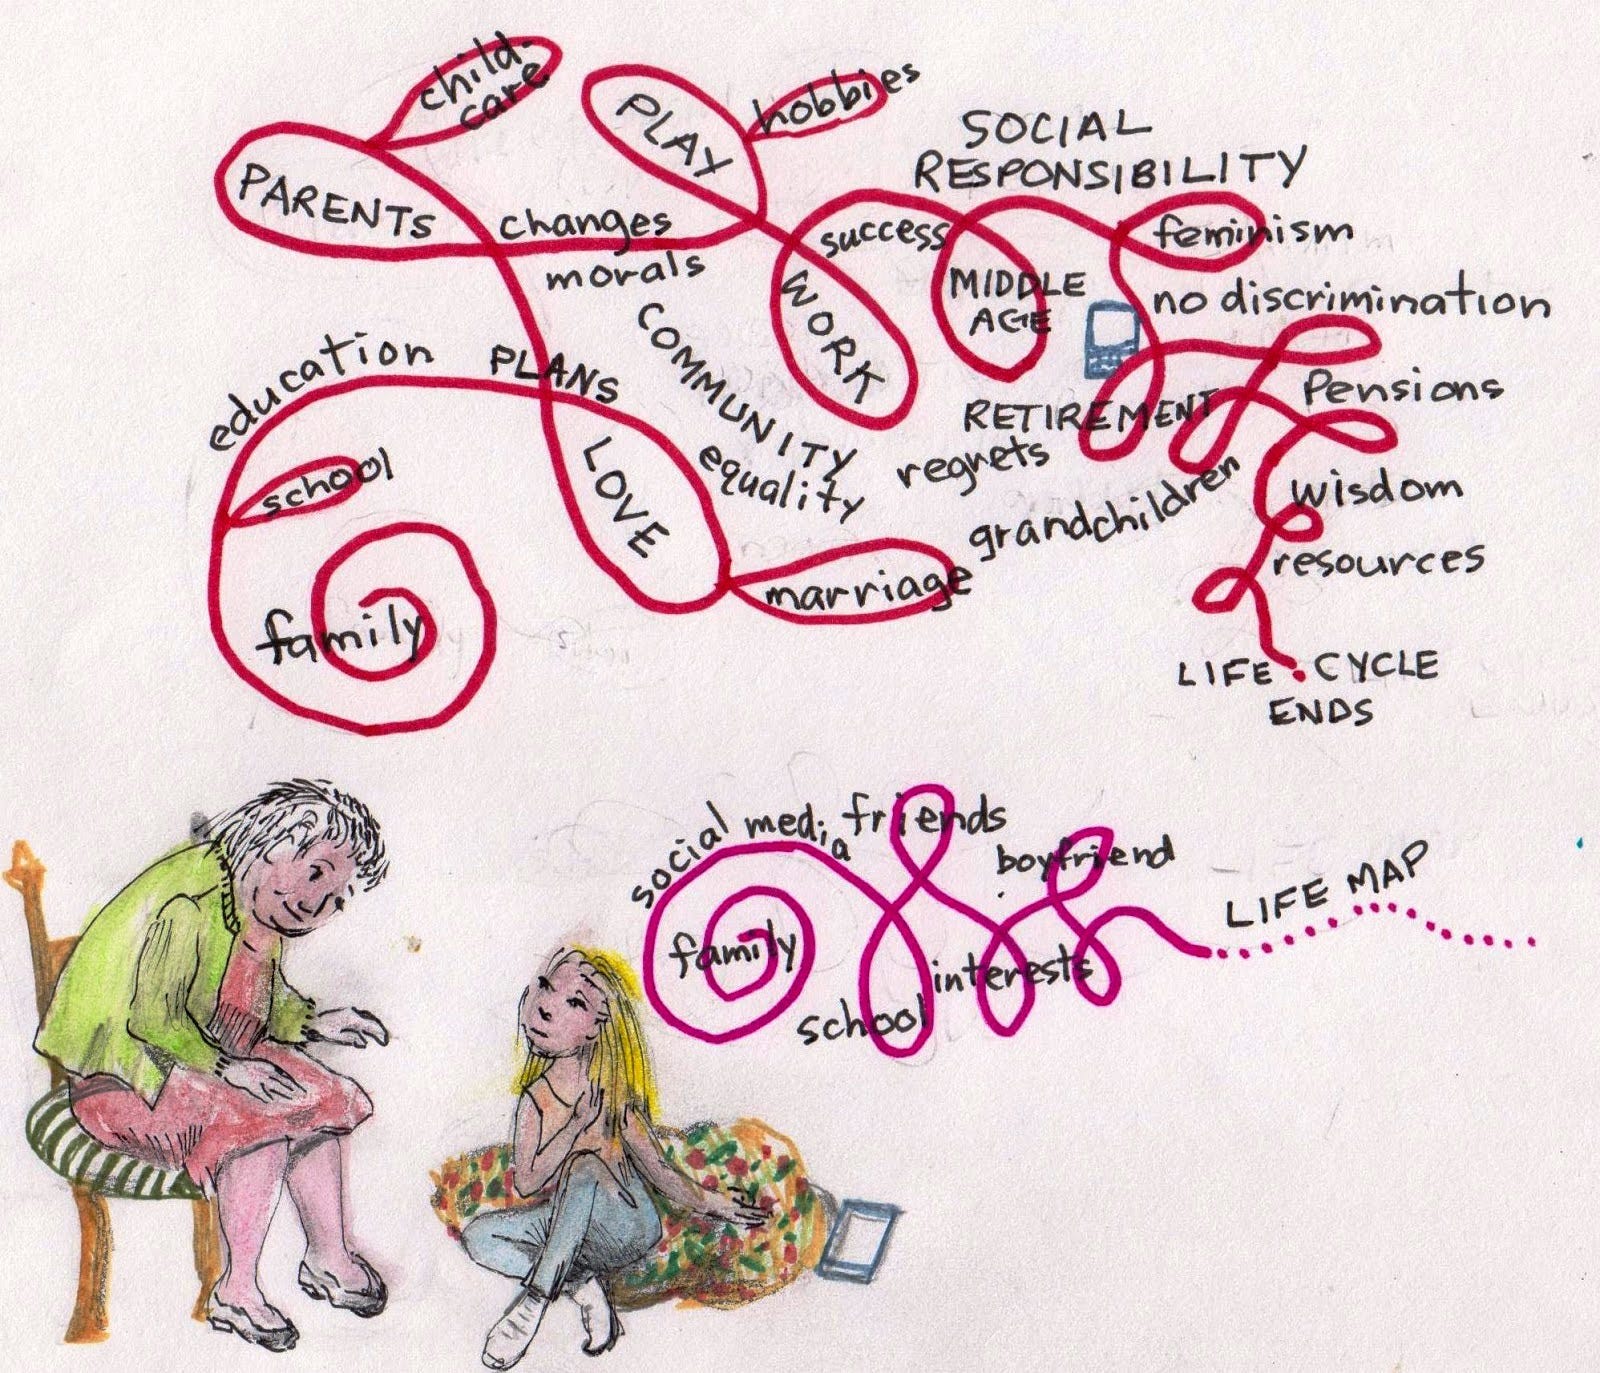 child-
care
PLAY
hobbies
SOCIAL
RESPONSIBILITY
PARENTS
changes
morals
success
feminism
MIDDLE
AGE
no discrimination
WORK
COMMUNITY
education
PLANS
Pensions
RETIREMENT
regrets
equality
LOVE
school
grandchildren
wisdom
resources
marriage
family
LIFE CYCLE
ENDS
social media
friends
boyfriend
LIFE MAP
family
interests
school